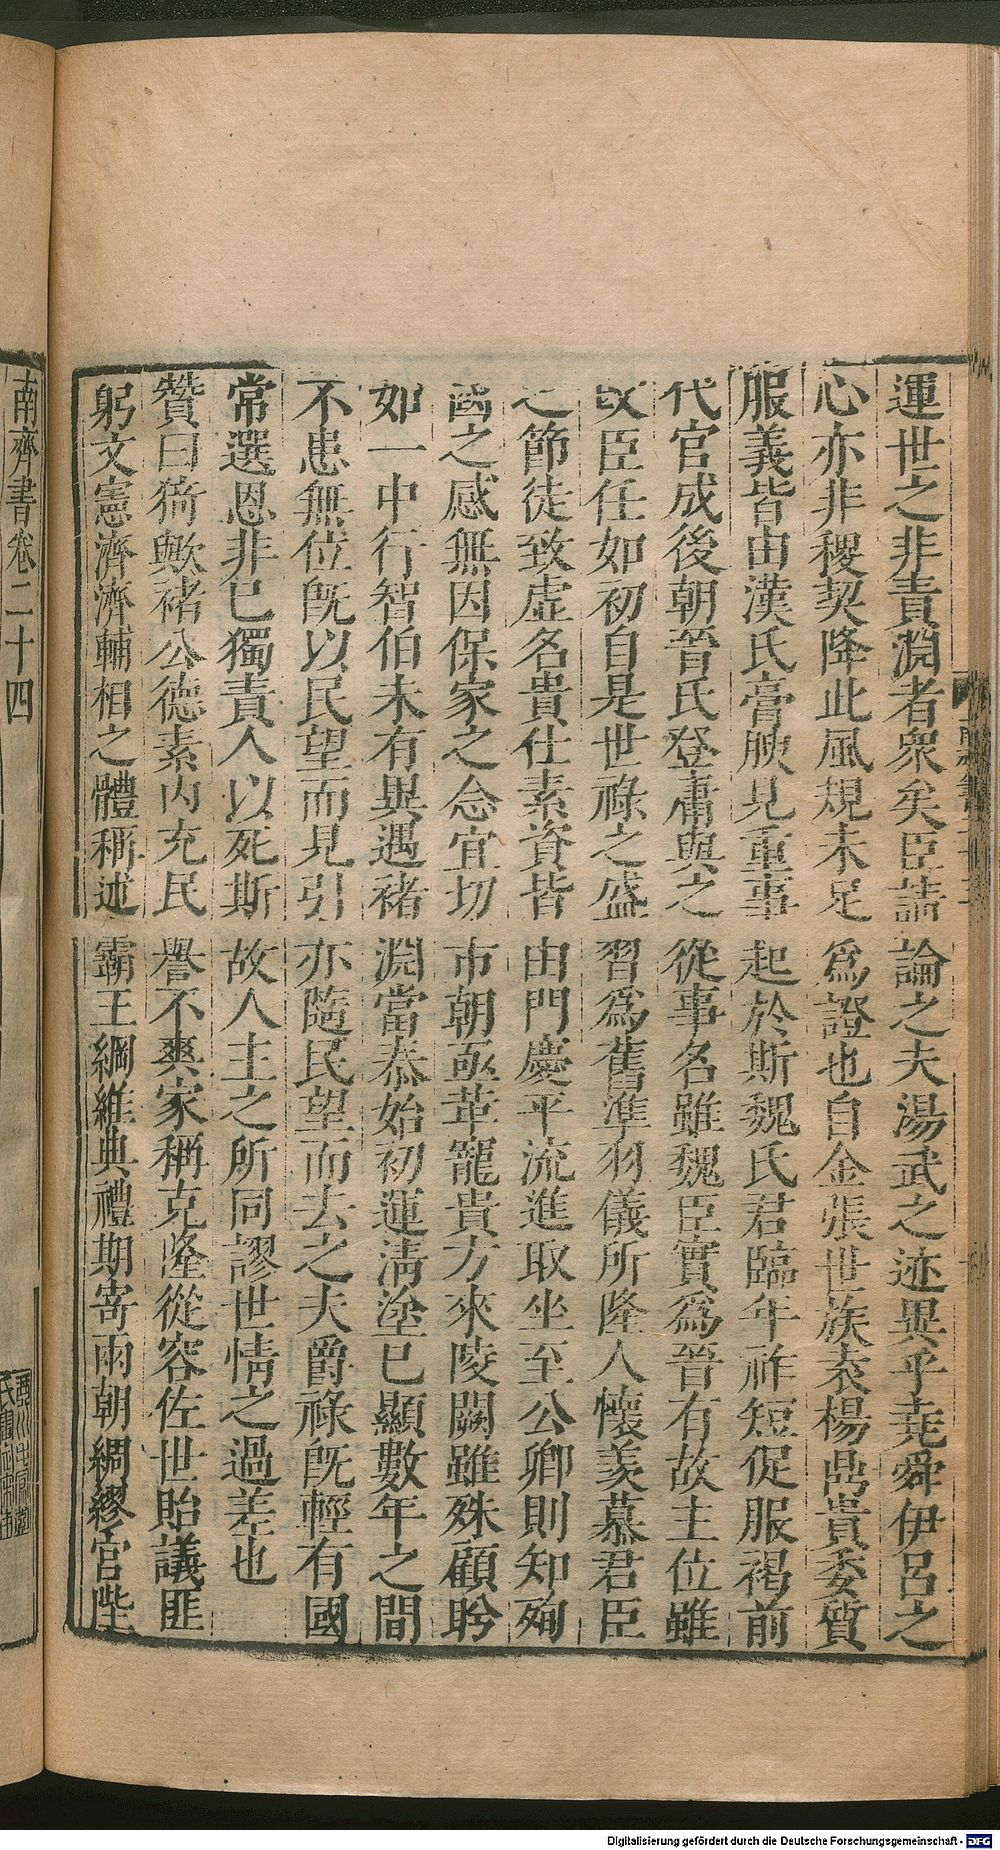 運世之非責淵者衆矣臣請論之夫湯武之迹異乎堯舜伊呂之
心亦非稷契降此風規未足爲證也自金張世族袁楊鼎貴委質
服義皆由漢氏膏腴見重事起於斯魏氏君臨年祚短促服褐前
代官成後朝晉氏登庸與之從事名雖魏臣實爲晉有故主位雖
改臣任如初自是世祿之盛習爲舊準羽儀所隆人懷羡慕君臣
之節徒致虛名貴仕素資皆由門慶平流進取坐至公卿則知殉
國之感無因保家之念宜切市朝亟革寵貴方來陵闕雖殊顧眄
如一中行智伯未有異遇褚淵當泰始初運清塗已顯數年之間
不患無位旣以民望而見引亦隨民望而去之夫爵祿旣輕有國
常選恩非已獨責人以死斯故人主之所同謬世情之過差也
贊曰猗歟褚公德素内充民譽不爽家稱克隆從容佐世貽議匪
躬文憲濟濟輔相之體稱述霸王綱維典禮期寄兩朝綢繆宮陛
南齊書卷二十四
Digitalisierung gefördert durch die Deutsche Forschungsgemeinschaft - DFG